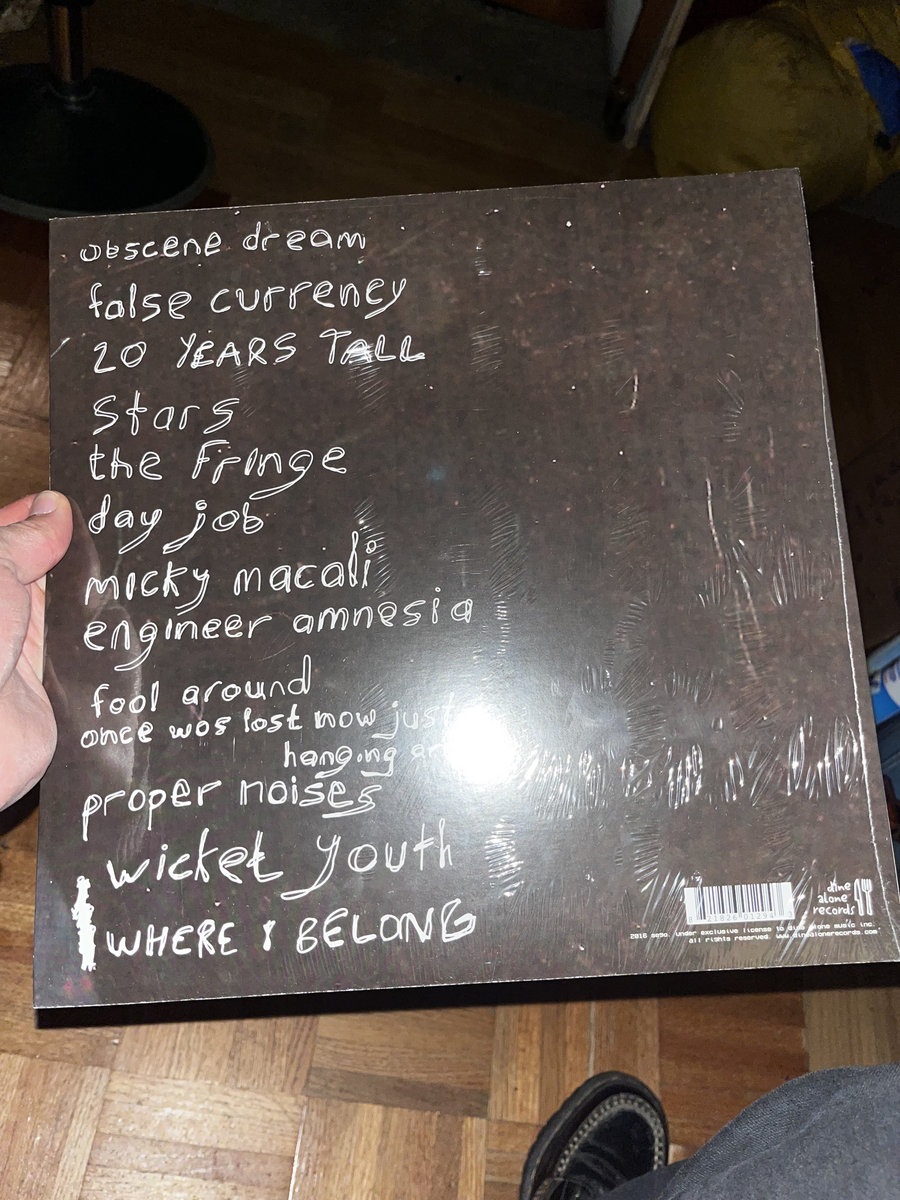 obscene dream
false currency
20 YEARS TALL
stars
the Fringe
day job
micky macali
engineer amnesia
fool around
once was lost now just
hanging
proper noises
wicket youth
WHERE I BELONG
dine
alone
records
under exclusive license to dine alone music inc.
all rights reserved. www.dinealonerecords.com